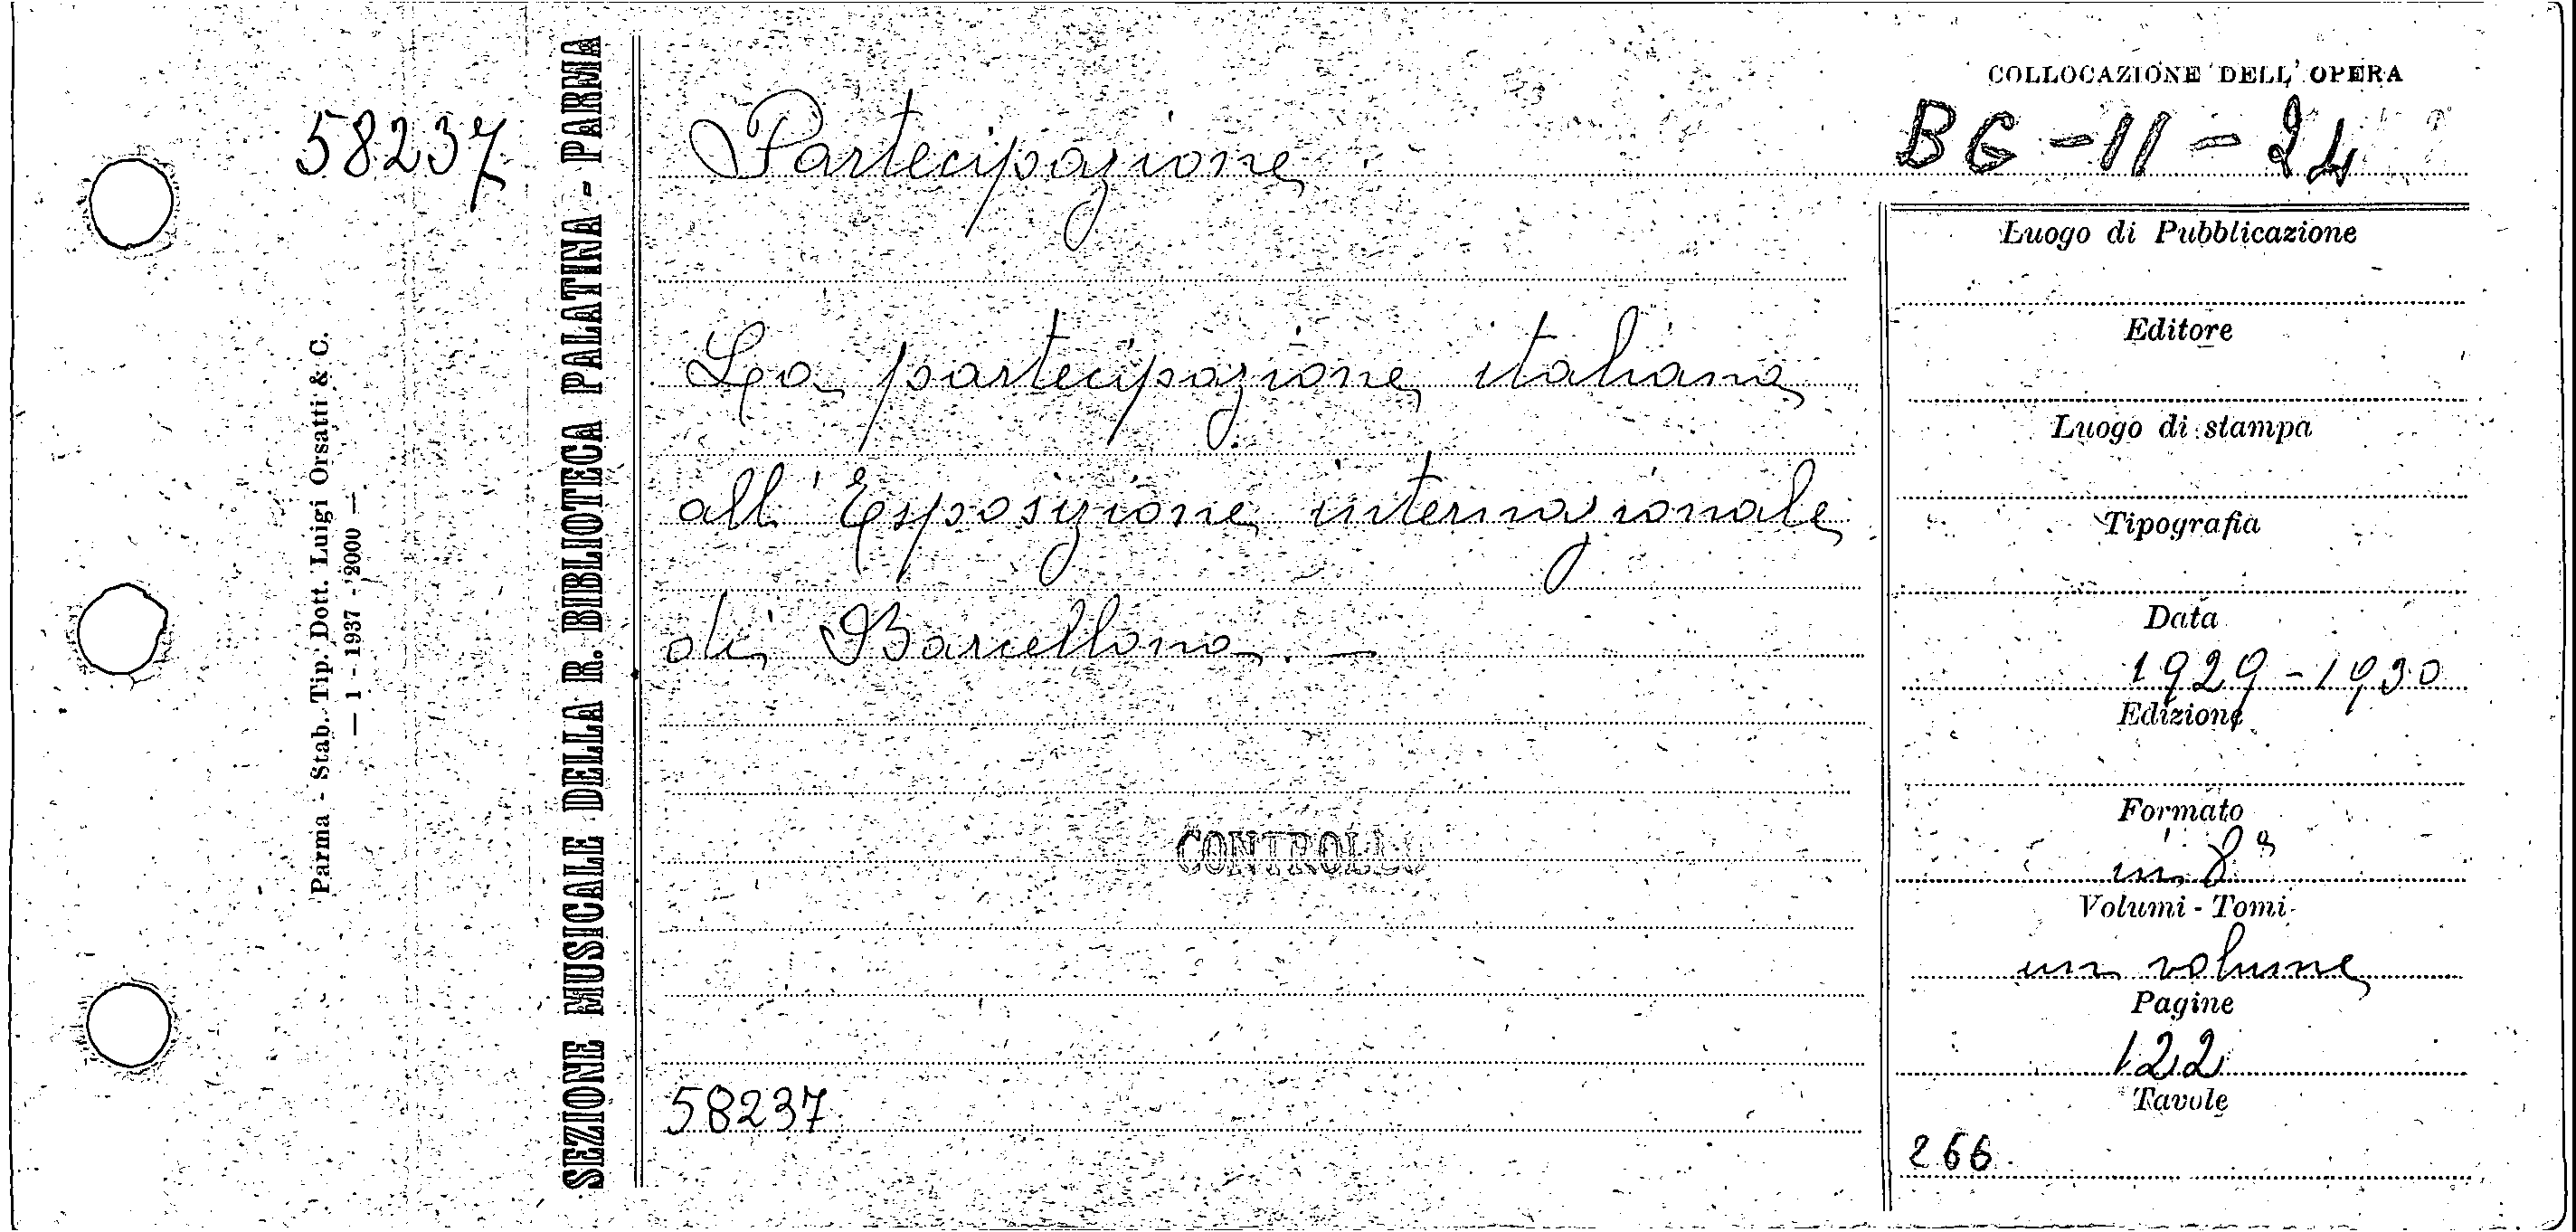 58237
Parma - Stab. Tip. Dott. Luigi Orsatti & C.
— 1 - 1937 - 2000 —
SEZIONE MUSICALE DELLA R. BIBLIOTECA PALATINA - PARMA
Partecipazione
La partecipazione italiana
all'Esposizione internazionale
di Barcellona. —
CONTROLLO
58237
COLLOCAZIONE DELL'OPERA
BG - II - 24
Luogo di Pubblicazione
Editore
Luogo di stampa
Tipografia
Data
1929 - 1930
Edizione
Formato
in 8º
Volumi - Tomi
un volume
Pagine
122
Tavole
266